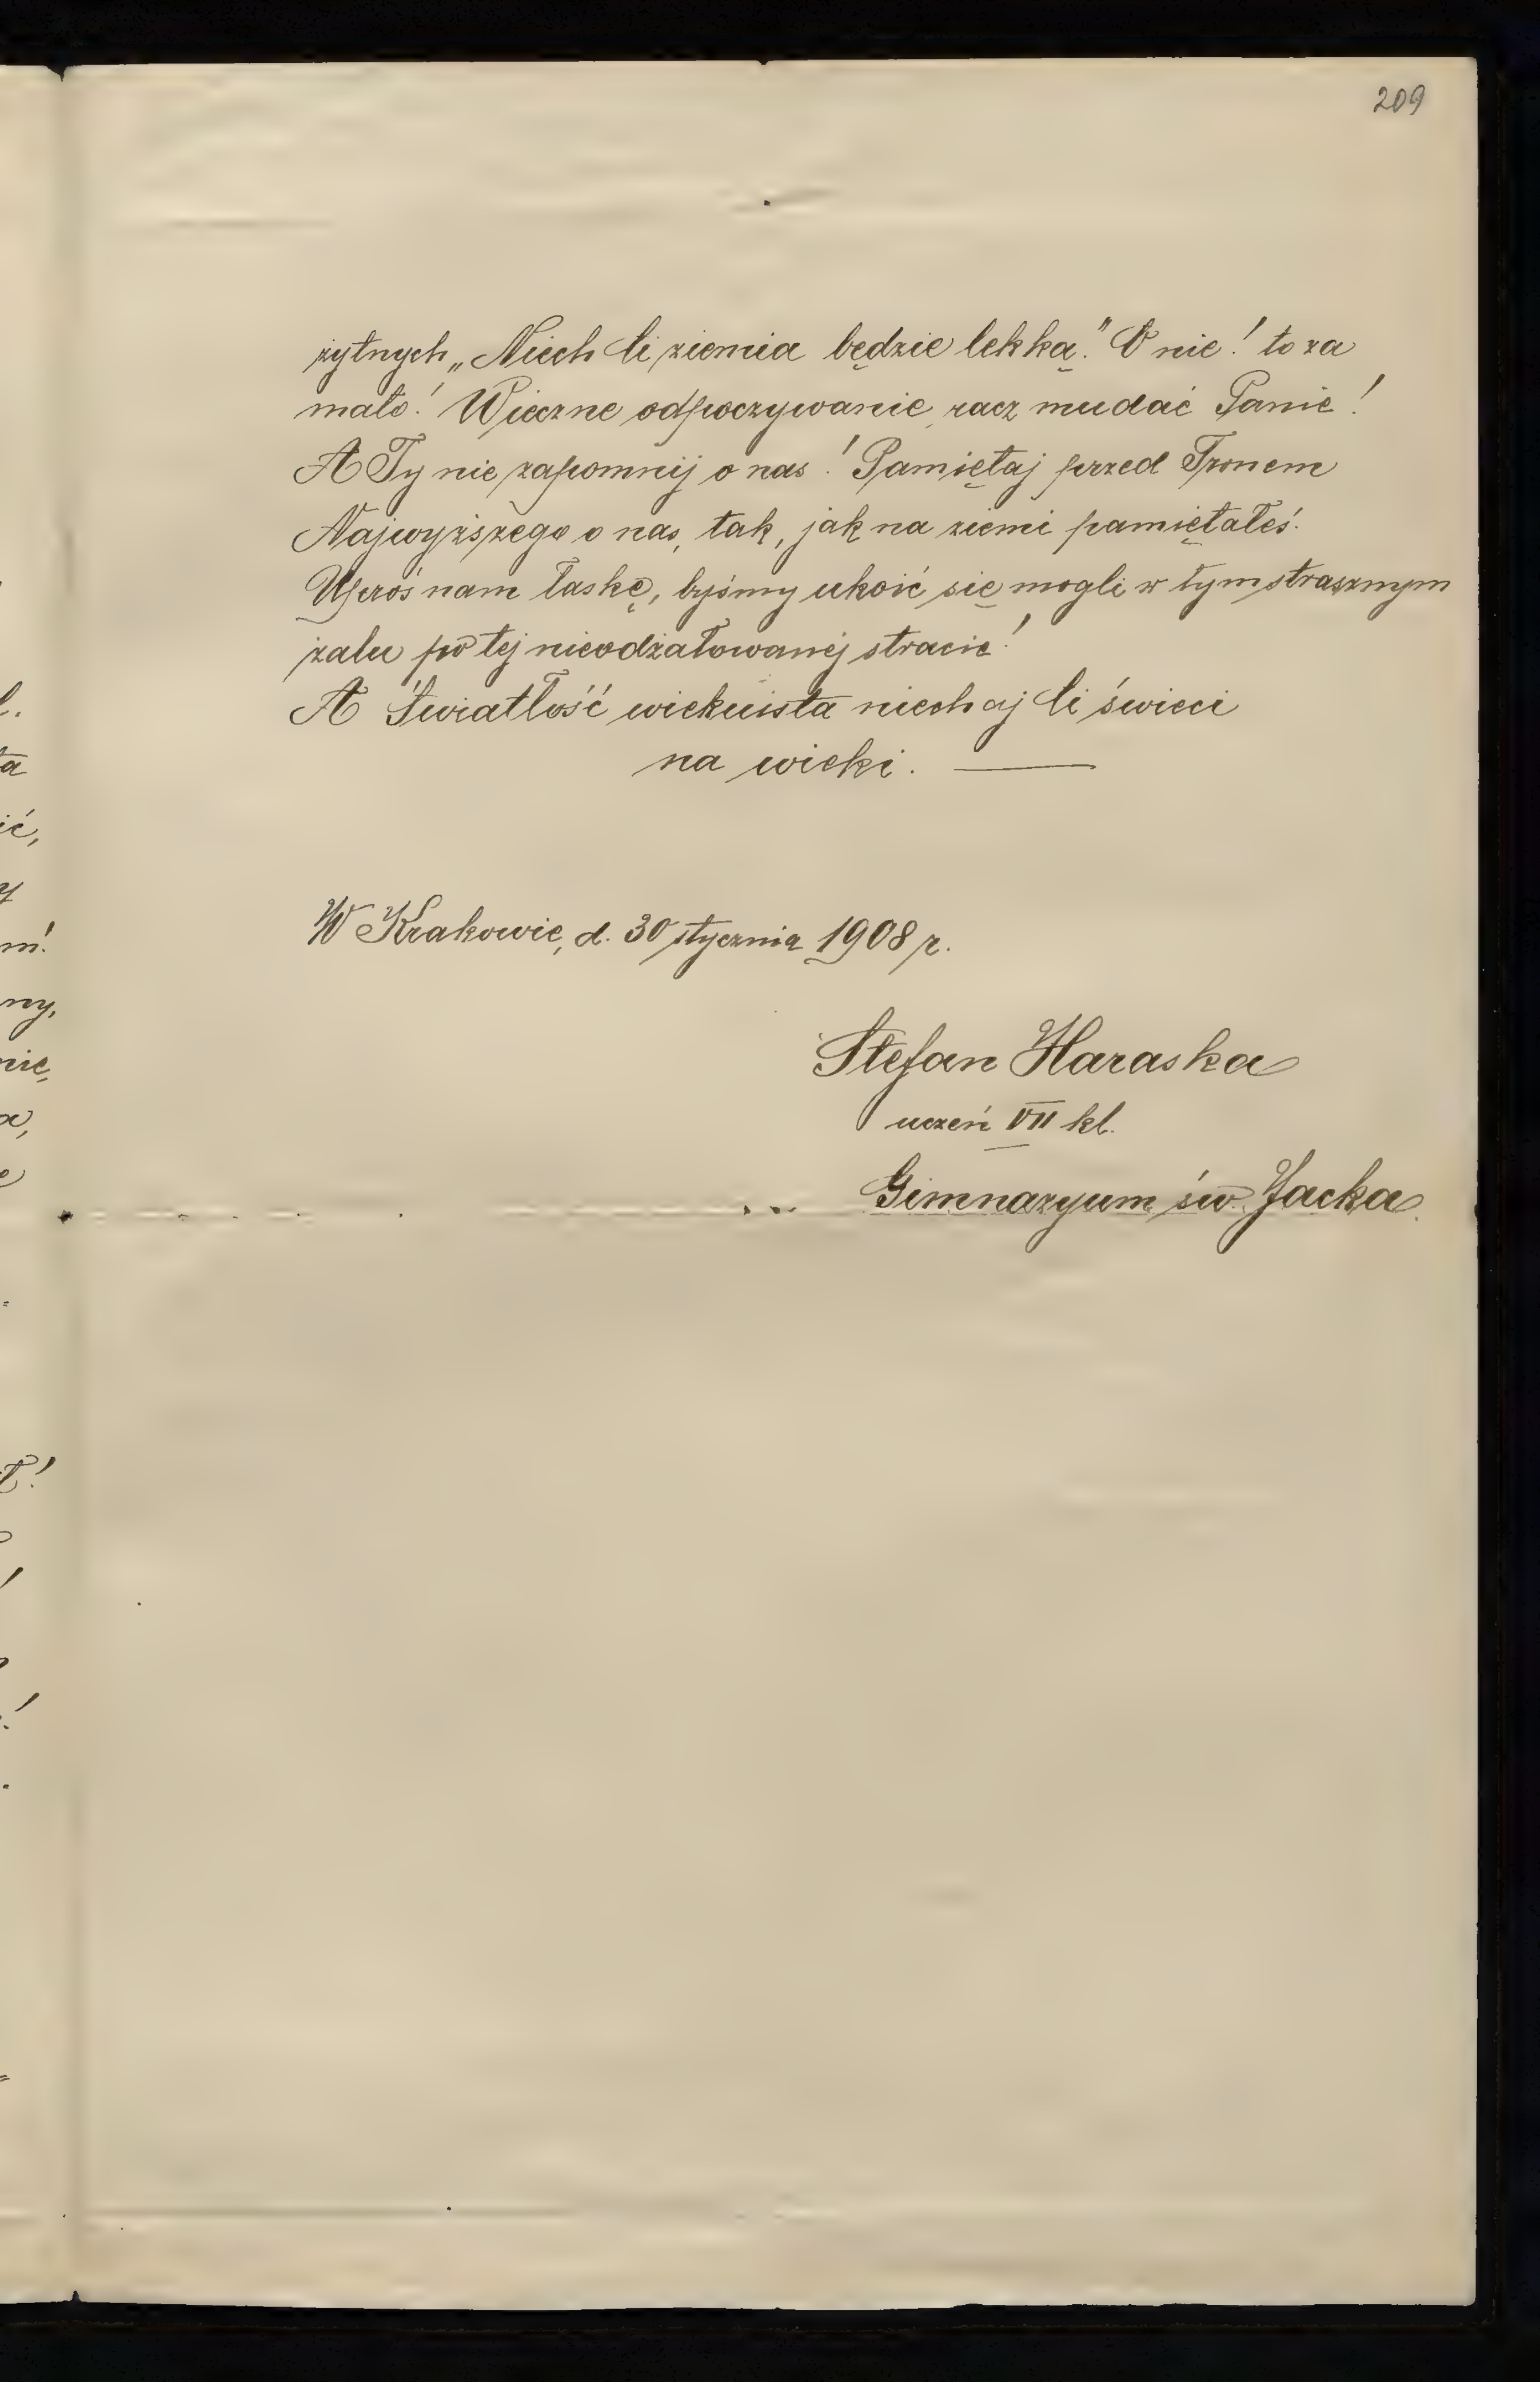 209
żytnych „Niech Ci ziemia będzie lekką." O nie! to za
mało! Wieczne odpoczywanie racz mu dać Panie!
A Ty nie zapomnij o nas! Pamiętaj przed Tronem
Najwyższego o nas, tak, jak na ziemi pamiętałeś.
Uproś nam łaskę, byśmy ukoić się mogli w tym strasznym
żalu po tej nieodżałowanej stracie!
A Światłość wiekuista niechaj Ci świeci
na wieki. ———
W Krakowie, d. 30 stycznia 1908 r.
Stefan Haraska
uczeń VII kl.
Gimnazyum św. Jacka